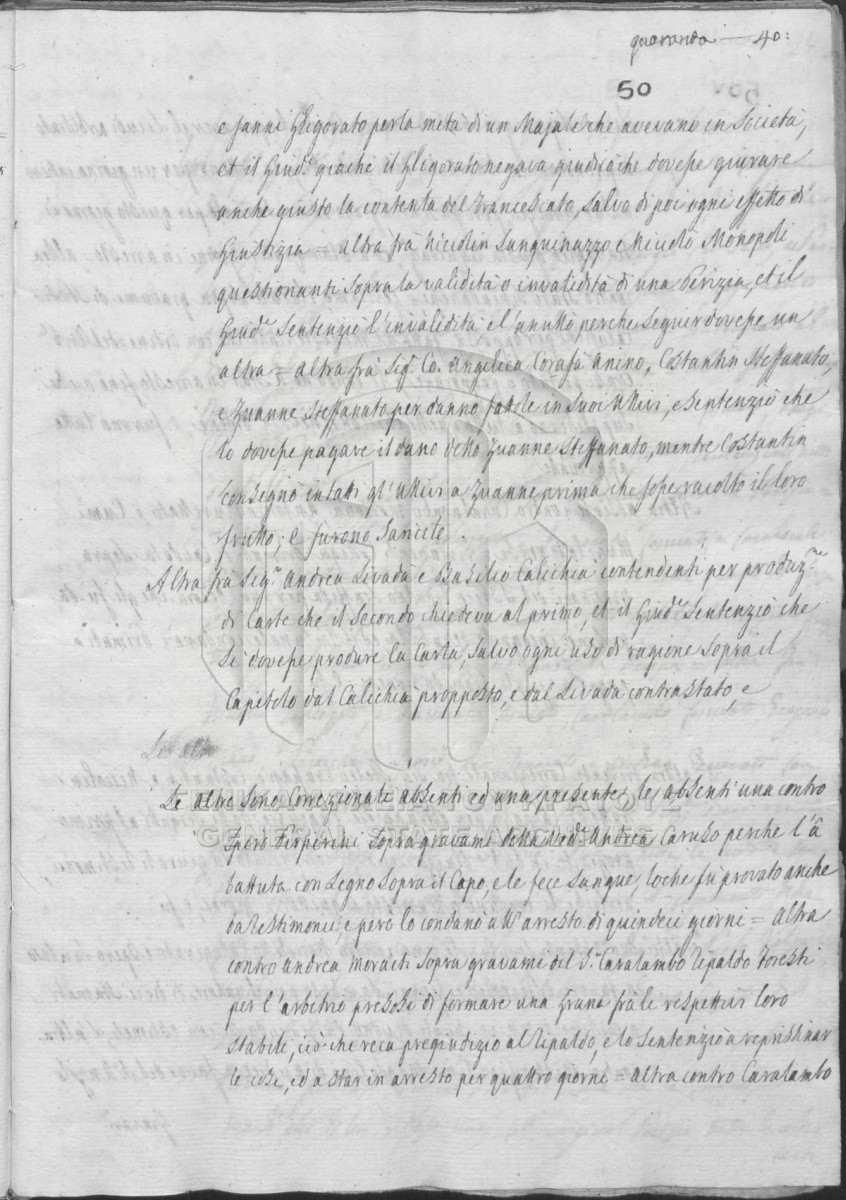 quaranda — 40:
50
e Janni Gligorato per la metà di un Majale che avevano in Società,
et il Giud.e giachè il Gligorato negava giudicò che dovesse giurare
anche giusto la contenta del Francescato, salvo di poi ogni effetto di
Giustizia = altra frà Niccolin Sanguinazzo e Nicolò Monopoli
questionanti sopra la validità o invalidità di una Perizia, et il
Giud.e Sentenziò l'invalidità e l'anullò perche seguir dovesse un
altra = altra frà Sig.a Co. Angelica Corafà Anino, Costantin Steffanato,
e Zuanne Steffanato per danno fattole in suoi Ulivi, e Sentenziò che
lo dovesse pagare il dano detto Zuanne Steffanato, mentre Costantin
consegnò intatti gl'Ulivi a Zuanne prima che fosse racolto il loro
frutto; e furono Sancite.
Altra frà Sig.r Andrea Livadà e Basilio Calichià contendenti per produz.ne
di Carte che il Secondo chiedeva al primo, et il Giud.e Sentenziò che
si dovesse produre la Carta, salvo ogni uso di ragione sopra il
Capitolo dal Calichià propposto, e dal Livadà contrastato, e
Le alt
Le altre sono Correzionali absenti ed una presente; le absenti una contro
Spiro Perperini sopra gravami della Med.a Andrea Caruso perche l'à
battuta con Legno sopra il Capo, e le fece sangue, loche fù provato anche
da Testimonii, e però lo condanò all'arresto di quindeci giorni = Altra
contro Andrea Moraiti sopra gravami del S.r Caralambo Tipaldo Foresti
per l'arbitrio presosi di formare una Grana frà le respettivi loro
stabili, ciò che reca pregiudizio al Tipaldo, e lo sentenziò a reprisstinar
le cose, ed a star in arresto per quattro giorni = altra contro Caralambo
ΓΕΝΙΚΑ ΑΡΧΕΙΑ ΤΟΥ ΚΡΑΤΟΥΣ
GENERAL STATE ARCHIVES